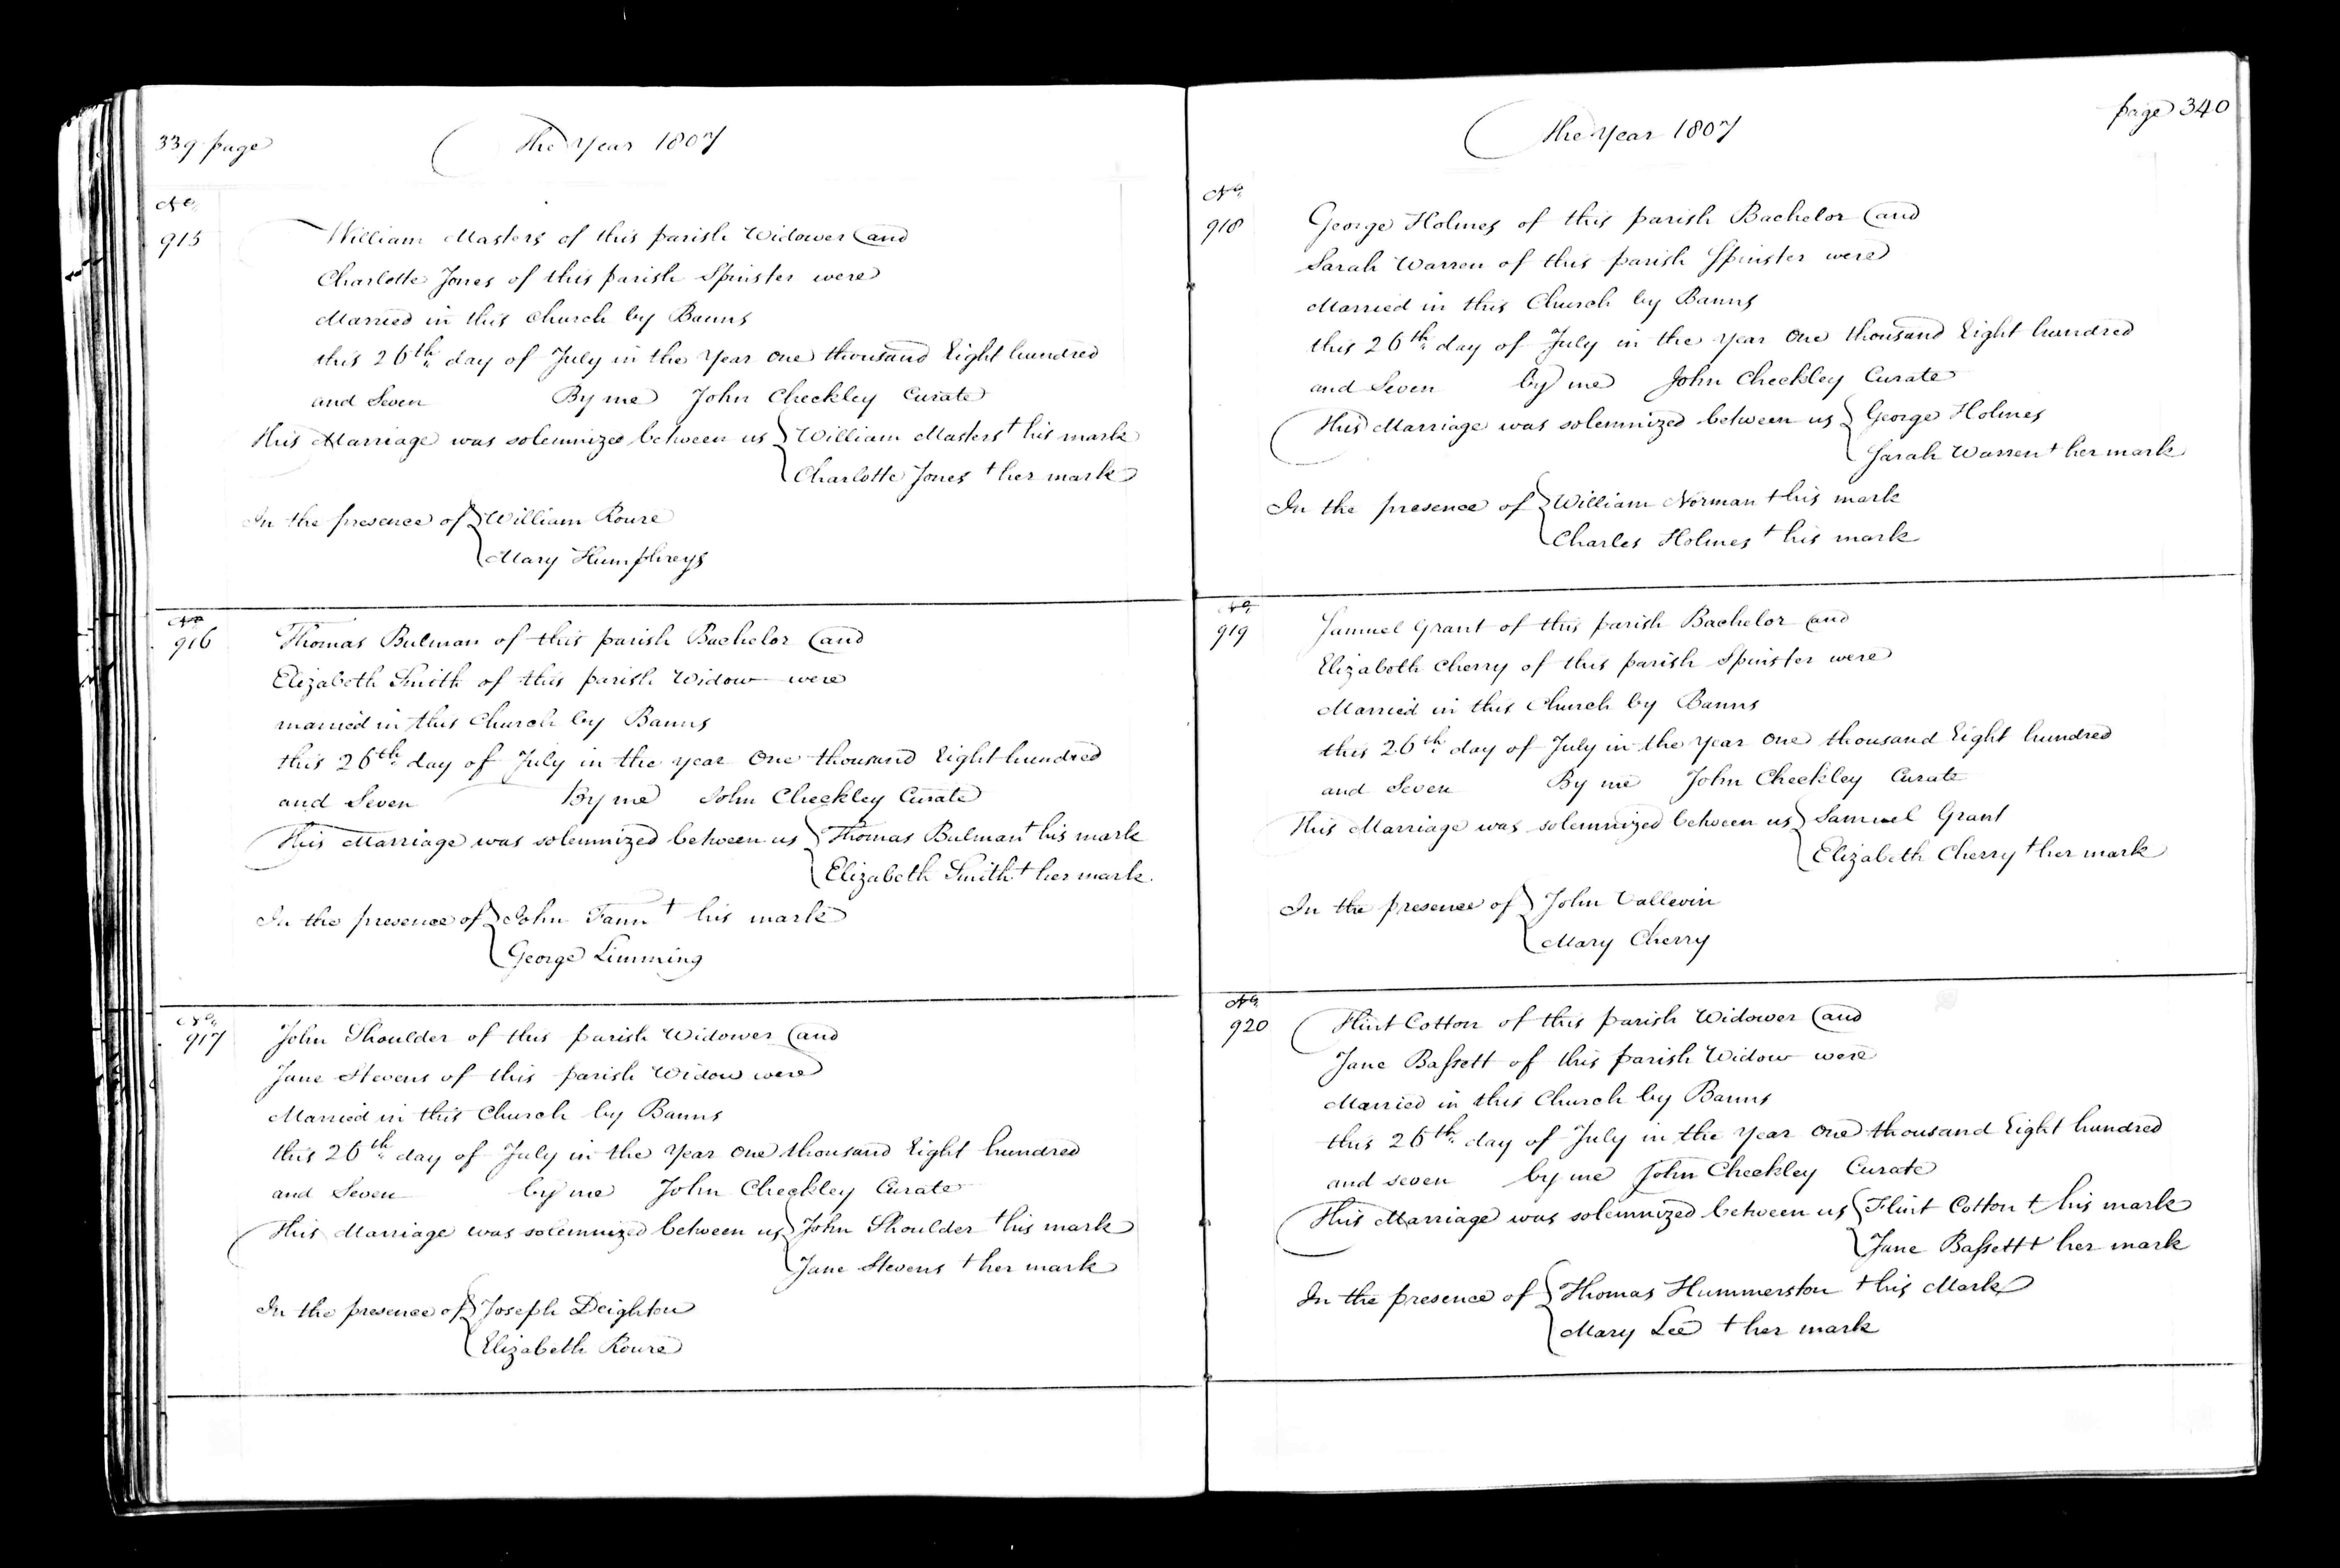 339 page
The Year 1807
No.
915
William Masters of this parish Widower and
Charlotte Jones of this parish Spinster were
Married in this Church by Banns
this 26th day of July in the Year One thousand Eight hundred
and Seven By me John Checkley Curate
This Marriage was solemnized between us William Masters + his mark
Charlotte Jones + her mark
In the presence of William Roure
Mary Humphreys
No.
916
Thomas Bulman of this parish Bachelor and
Elizabeth Smith of this parish Widow were
married in this Church by Banns
this 26th day of July in the year One thousand Eight hundred
and Seven By me John Checkley Curate
This Marriage was solemnized between us Thomas Bulman + his mark
Elizabeth Smith + her mark.
In the presence of John Fann + his mark
George Limming
No.
917
John Shoulder of this parish Widower and
Jane Stevens of this parish Widow were
Married in this Church by Banns
this 26th day of July in the Year One thousand Eight hundred
and Seven by me John Checkley Curate
This Marriage was solemnized between us John Shoulder + his mark
Jane Stevens + her mark
In the presence of Joseph Deighton
Elizabeth Roure
page 340
The Year 1807
No.
918
George Holmes of this parish Bachelor and
Sarah Warren of this parish Spinster were
Married in this Church by Banns
this 26th day of July in the year One thousand Eight hundred
and Seven by me John Checkley Curate
This Marriage was solemnized between us George Holmes
Sarah Warren + her mark
In the presence of William Norman + his mark
Charles Holmes + his mark
No.
919
Samuel Grant of this parish Bachelor and
Elizabeth Cherry of this parish Spinster were
Married in this Church by Banns
this 26th day of July in the Year One thousand Eight hundred
and Seven By me John Checkley Curate
This Marriage was solemnized between us Samuel Grant
Elizabeth Cherry + her mark
In the presence of John Vallevin
Mary Cherry
No.
920
Flint Cotton of this parish Widower and
Jane Bassett of this parish Widow were
Married in this Church by Banns
this 26th day of July in the Year One thousand Eight hundred
and seven by me John Checkley Curate
This Marriage was solemnized between us Flint Cotton + his mark
Jane Bassett + her mark
In the presence of Thomas Hummerston + his Mark
Mary Lee + her mark